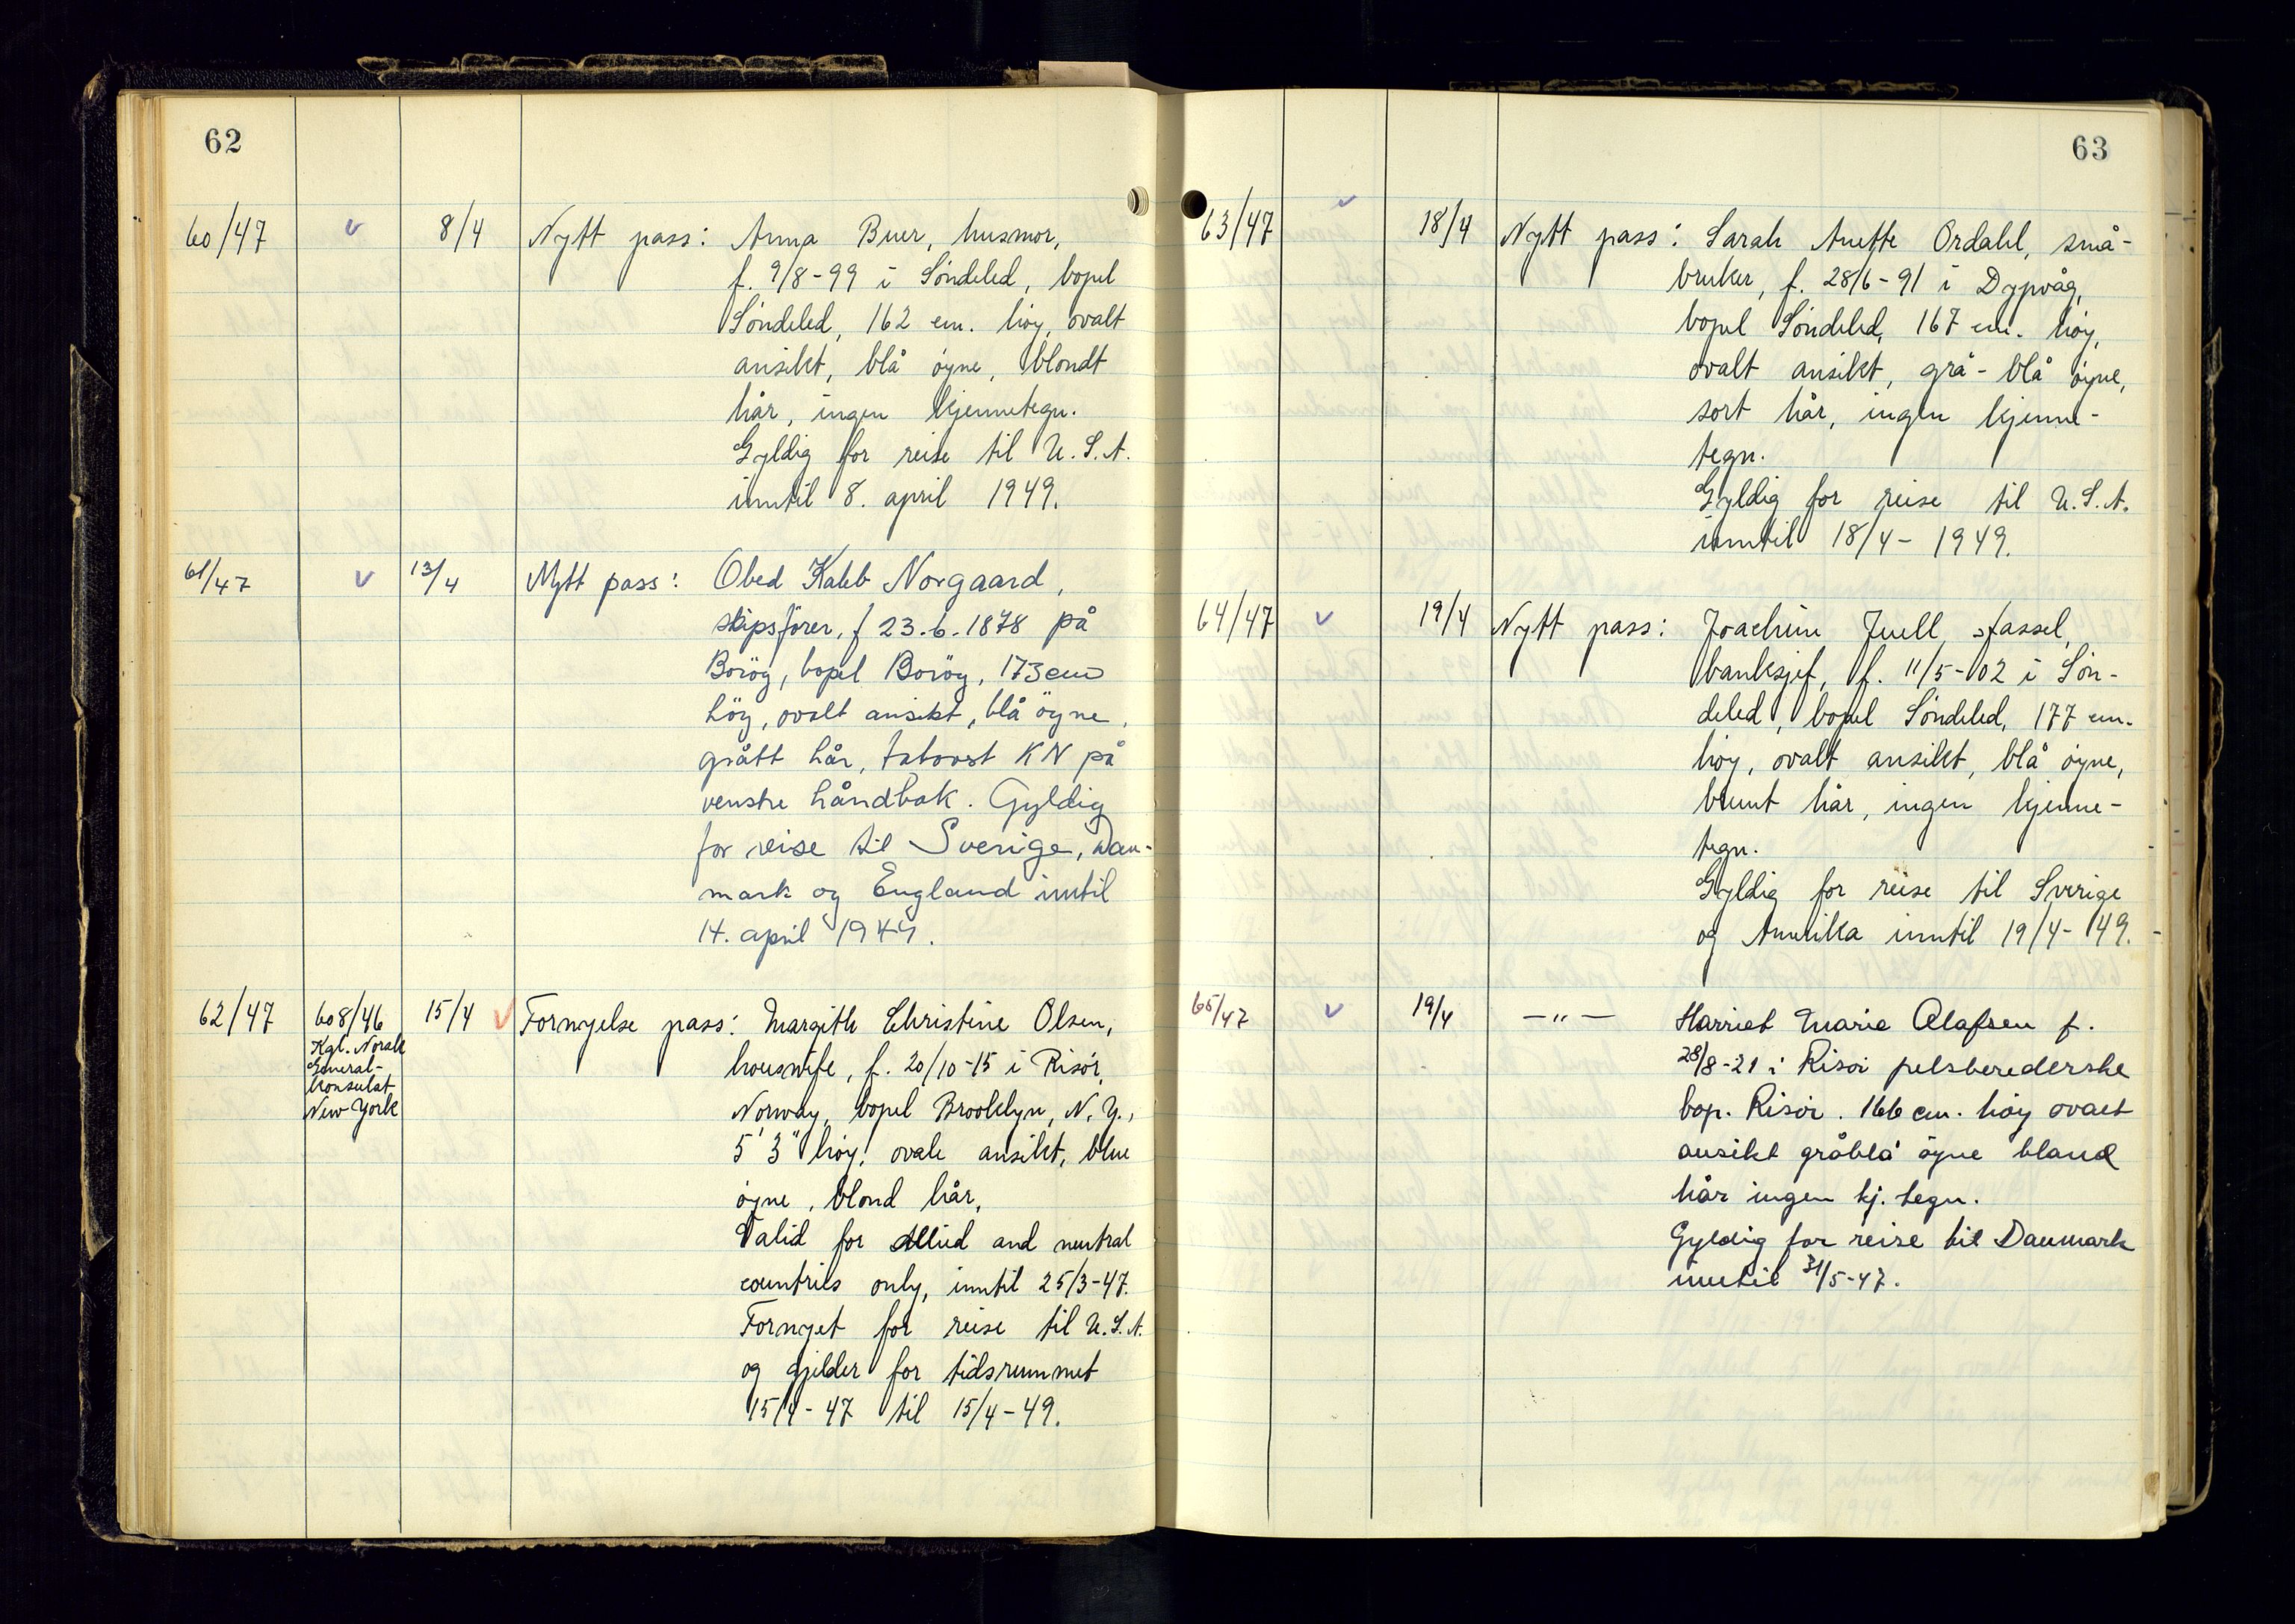 62
60/47 v 8/4 Nytt pass: Anna Buer, husmor,
f. 9/8-99 i Söndeled, bopel
Söndeled, 162 cm. høy, ovalt
ansikt, blå øyne, blondt
hår, ingen kjennetegn.
Gyldig for reise til U.S.A.
inntil 8. april 1949.
61/47 v 13/4 Nytt pass: Obed Kaleb Norgaard,
skipsförer, f 23.6.1878 på
Boröy, bopel Boröy, 173 cm
höy, ovalt ansikt, blå öyne,
grått hår, tatovert KN på
venstre håndbak. Gyldig
for reise til Sverige, Dan-
mark og England inntil
14. april 1949.
62/47 608/46 15/4 v Fornyelse pass: Margith Christine Olsen,
Kgl. Norsk
General-
konsulat
New York
houswife, f. 20/10-15 i Risör,
Norway, bopel Brooklyn, N.Y.,
5' 3" høy, ovale ansikt, blue
øyne, blond hår,
Valid for Allied and neutral
countries only, inntil 25/3-47.
Fornyet for reise til U.S.A.
og gjelder for tidsrummet
15/4-47 til 15/4-49.
63
63/47 v 18/4 Nytt pass: Sarah Anette Ordahl, små-
bruker, f. 28/6-91 i Dypvåg,
bopel Söndeled, 167 cm. høy,
ovalt ansikt, grå-blå øyne,
sort hår, ingen kjenne-
tegn.
Gyldig for reise til U.S.A.
inntil 18/4-1949.
64/47 v 19/4 Nytt pass: Joachim Juell
banksjef, f. 11/5-02 i Sön-
deled, bopel Söndeled, 177 cm.
høy, ovalt ansikt, blå øyne,
brunt hår, ingen kjenne-
tegn.
Gyldig for reise til Sverige
og Amerika inntil 19/4-49.
65/47 v 19/4 —"— Harriet Marie Olafsen f.
28/8-21 i Risör pelsberederske
bop. Risör. 166 cm. höy ovalt
ansikt gråblå öyne blond
hår ingen kj. tegn.
Gyldig for reise til Danmark
inntil 31/5-47.